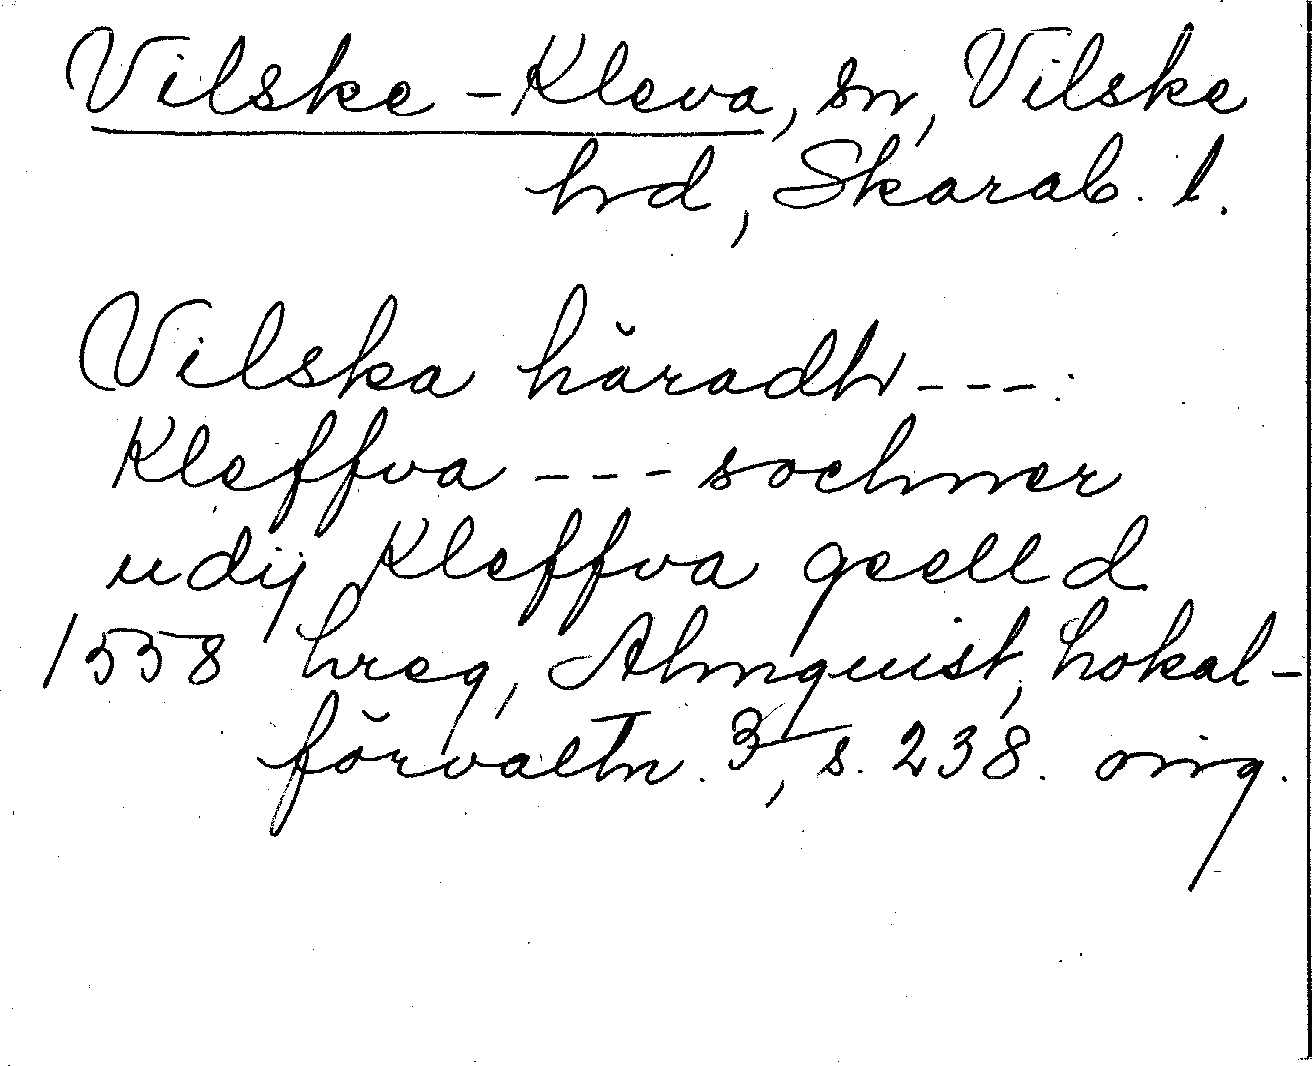 Vilske-Kleva, sn, Vilske
hd, Skarab. l.
Vilska häradh ---:
Kleffva --- sochner
udij Kleffva geelld
1558 hreg, Almquist, Lokal-
förvaltn. 3, s. 238. orig.